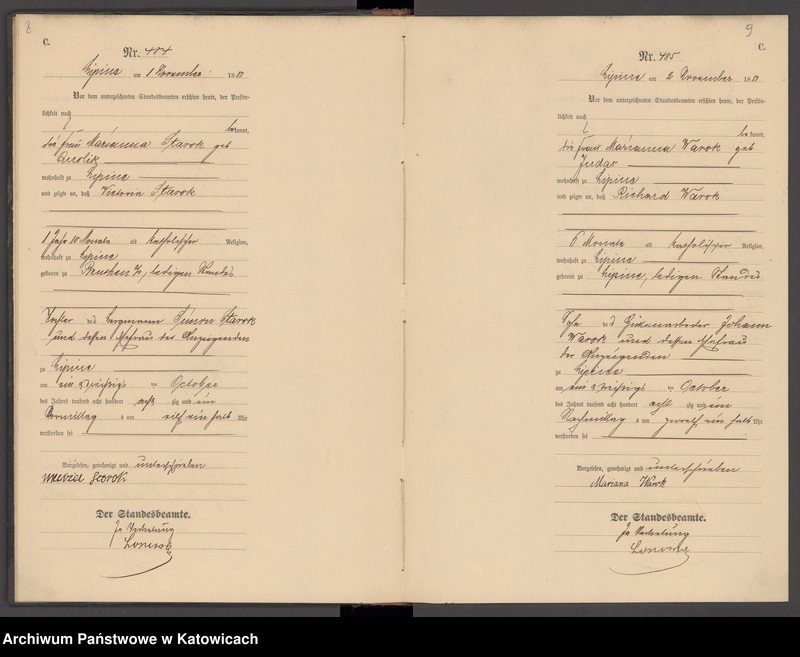 8
C.
Nr. 484
Lipine am 1 November 1881
Vor dem unterzeichneten Standesbeamten erschien heute, der Persön-
lichkeit nach
bekannt,
die Frau Marianna Starok geb
wohnhaft zu Lipine
und zeigte an, daß Victorin Starok
1 Jahr 10 Monate alt katholischer Religion,
wohnhaft zu Lipine
geboren zu Beuthen, ledigen Standes
Tochter des Bergmann Simon Starok
und dessen Ehefrau der Anzeigenden
zu Lipine
am ein dreißigs October
des Jahres tausend acht hundert achtzig und ein
Vormittag um elf ein halb Uhr
verstorben sei
Vorgelesen, genehmigt und unterschrieben
Starok
Der Standesbeamte.
In Vertretung
9
C.
Nr. 485
Lipine am 2 November 1881
Vor dem unterzeichneten Standesbeamten erschien heute, der Persön-
lichkeit nach
bekannt,
die Frau Marianna Warok geb
Judas
wohnhaft zu Lipine
und zeigte an, daß Richard Warok
6 Monate alt katholischer Religion,
wohnhaft zu Lipine
geboren zu Lipine, ledigen Standes
Sohn des Hüttenarbeiter Johann
Warok und dessen Ehefrau
der Anzeigenden
zu Lipine
am ein dreißigs October
des Jahres tausend acht hundert achtzig und ein
Nachmittag um zwölf ein halb Uhr
verstorben sei
Vorgelesen, genehmigt und unterschrieben
Mariana Warok
Der Standesbeamte.
In Vertretung
Archiwum Państwowe w Katowicach